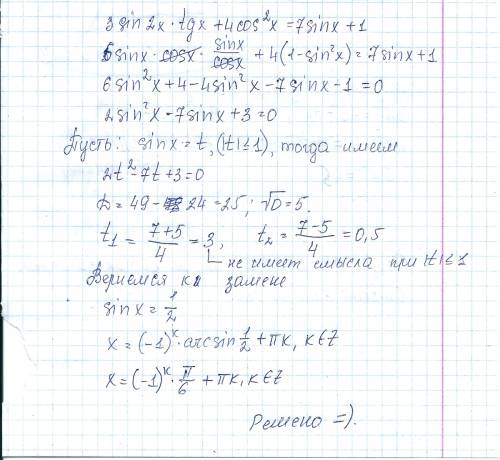 3 sin 2x · tgx + 4cos²x = 7sinx + 1
6 sinx · cosx · sinx/cosx + 4(1-sin²x) = 7sinx+1
6sin²x + 4 - 4sin²x - 7sinx - 1 = 0
2sin²x - 7sinx + 3 = 0
Пусть: sinx = t, (|t| ≤ 1), тогда имеем
2t² - 7t + 3 = 0
D = 49 - 24 = 25; √D = 5.
t₁ = (7+5)/4 = 3, t₂ = (7-5)/4 = 0,5
не имеет смысла при |t| ≤ 1
Вернемся к замене
sinx = 1/2
x = (-1)ᵏ · arcsin 1/2 + πk, k∈Z
x = (-1)ᵏ · π/6 + πk, k∈Z
Решено =).